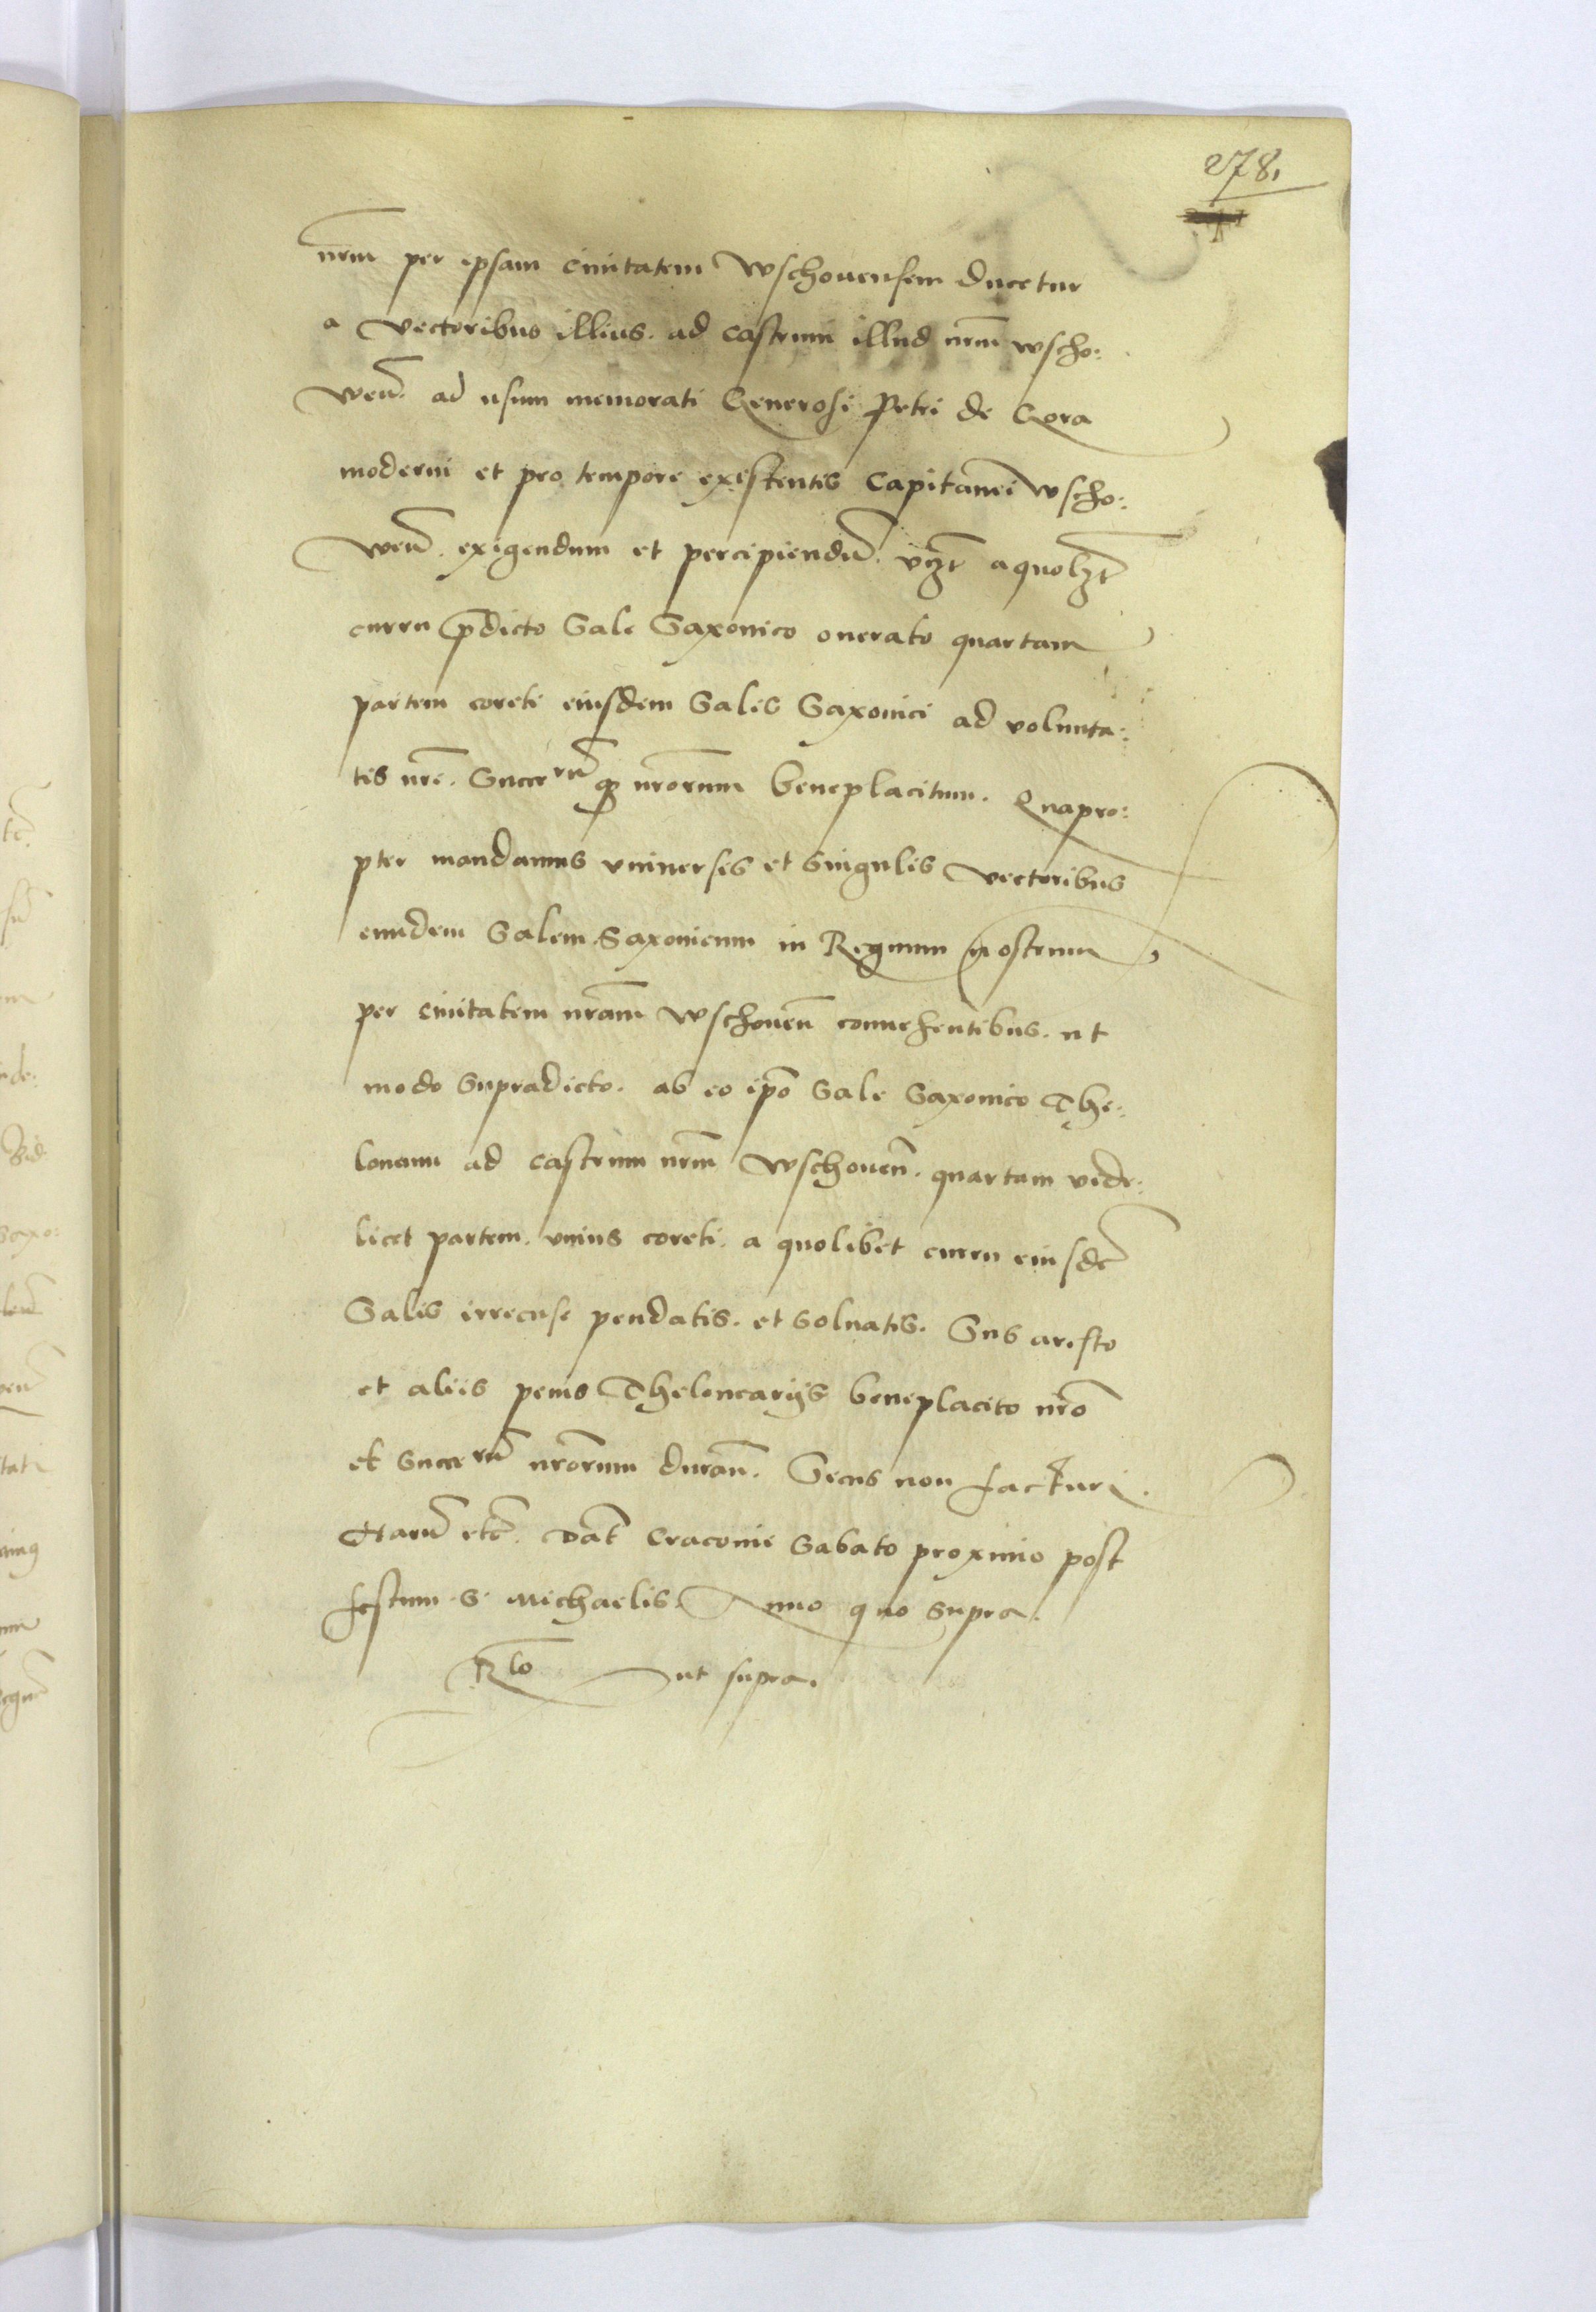 278.
nrm̄ per ipsam ciuitatem Wschouensem ducetur
a vectoribus illius. ad castrum illud nrm̄ wscho:
wen̄. ad usum memorati Generosi Petri de Gora
moderni et pro tempore existentis Capitanei wscho:
wen̄. exigendum et percipiendū. vizt a quolzt
curru p̄dicto Sale Saxonico onerato quartam
partem coreti eiusdem Salis Saxonici ad volunta:
tis nrē. Succerū q nrōrum beneplacitum. Quapro:
pter mandamus vniuersis et singulis vectoribus
eundem Salem Saxonicum in Regnum nostrum
per ciuitatem nram̄ Wschouen̄ conuehentibus. ut
modo supradicto. ab eo ipō Sale Saxonico The:
loneum ad castrum nrm̄ Wschouen̄. quartam vide:
licet partem. vnius coreti. a quolibet curru eiusdē
Salis irrecuse pendatis. et soluatis. Sub aresto
et aliis penis Thelonearijs beneplacito nrō
et Succerū nrōrum duran̄. Secus non facturi.
Harū etc̄. Dat̄ Cracouie Sabato proximo post
festum S. Michaelis. Anno quo supra.
Rlo ut supra.